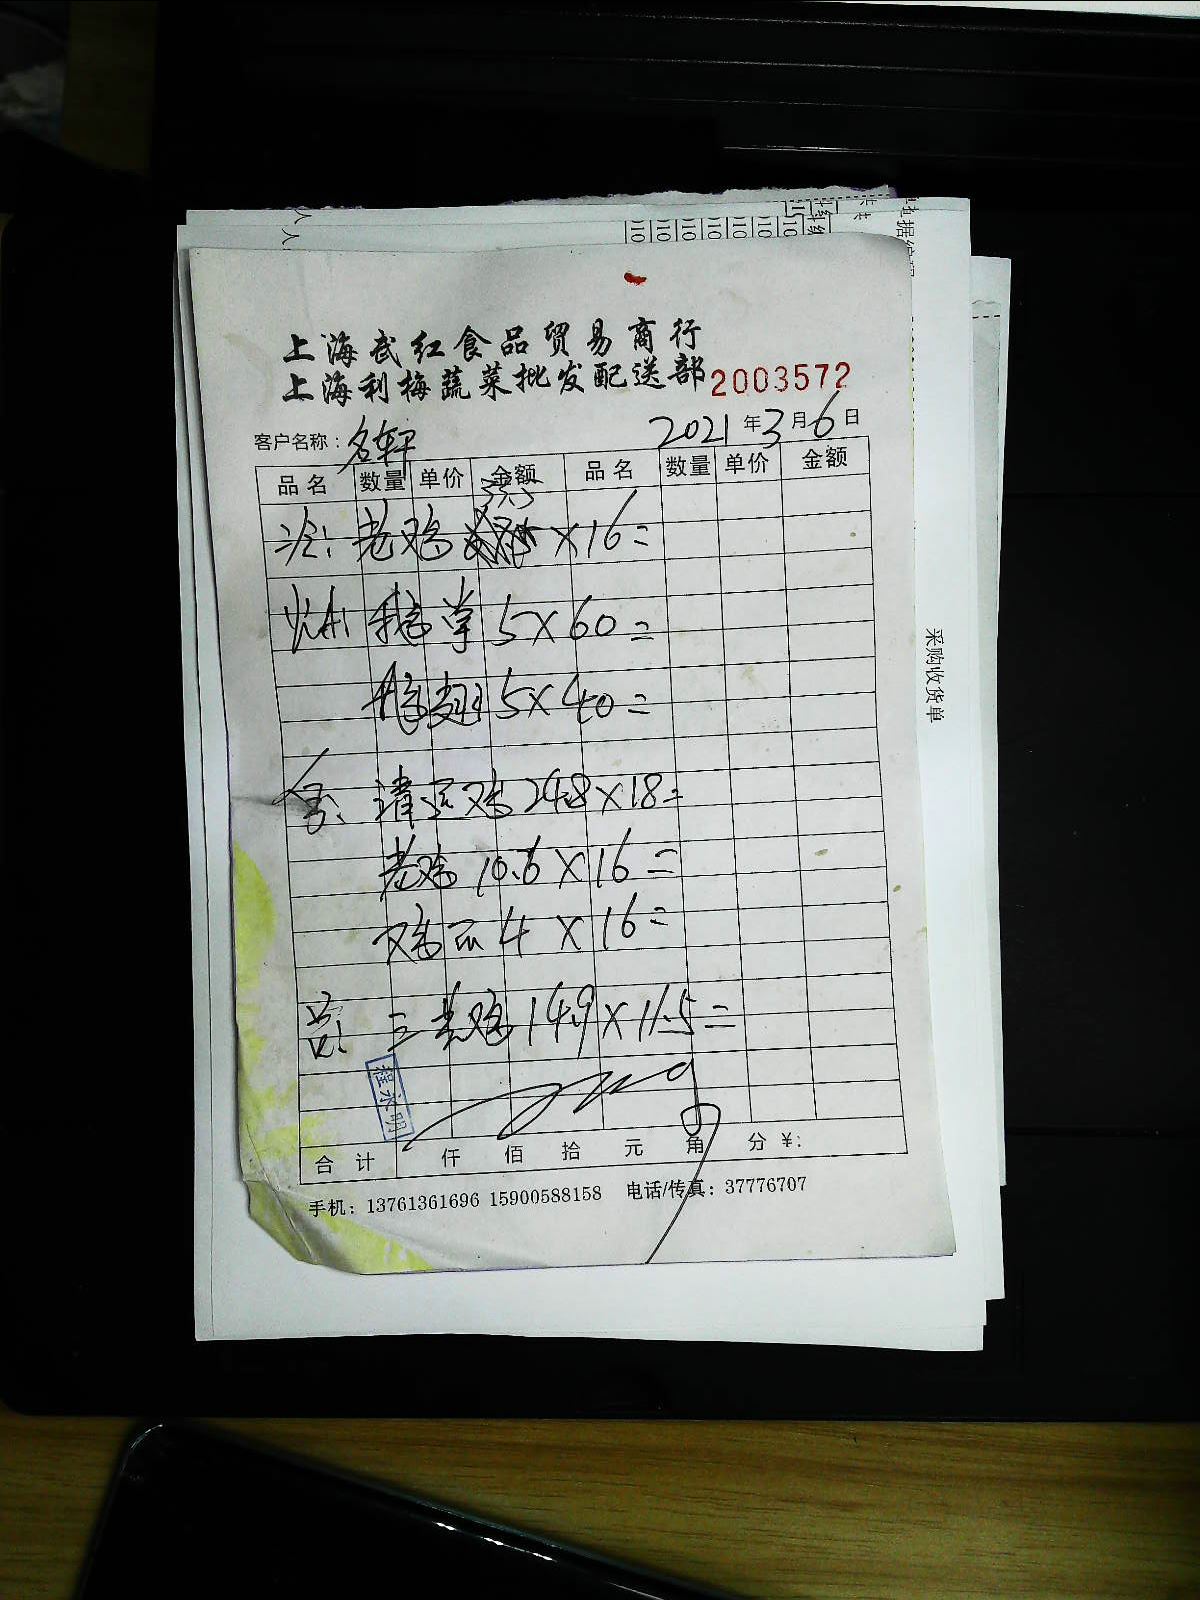 上海武红食品贸易商行
上海利梅蔬菜批发配送部 2003572
客户名称：名轩 2021年3月6日
品名 数量 单价 金额 品名 数量 单价 金额
冷：老鸡 ×16=
鹅掌 5×60=
鹅翅 5×40=
清远鸡 24.8×18=
老鸡 10.6×16=
鸡爪 4×16=
三黄鸡 14.9×11.5=
程永明
合计 仟 佰 拾 元 角 分 ¥:
手机：13761361696 15900588158 电话/传真：37776707
采购收货单